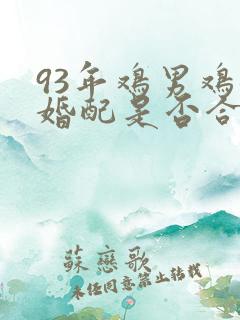 93年鸡男鸡
婚配是否合
蘇戀歌
未经同意禁止转载